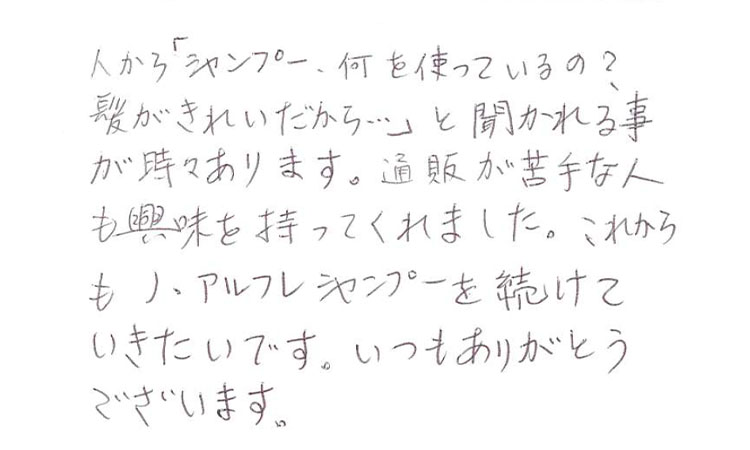 人から「シャンプー、何を使っているの？
髪がきれいだから…」と聞かれる事
が時々あります。通販が苦手な人
も興味を持ってくれました。これから
も ハ、アルフレ シャンプーを続けて
いきたいです。いつもありがとう
ございます。